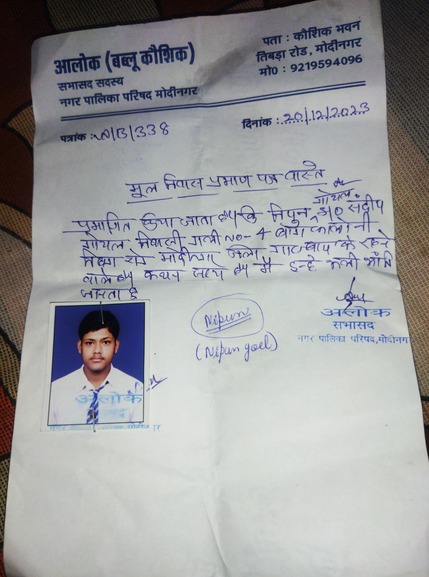 आलोक (बब्लू कौशिक)
सभासद सदस्य
नगर पालिका परिषद मोदीनगर
पता : कौशिक भवन
तिबड़ा रोड, मोदीनगर
मो० : 9219594096
पत्रांक : /B/338
दिनांक : 20/12/2023
मूल निवास प्रमाण पत्र वास्ते
गोयल
प्रमाणित किया जाता है कि निपुन S/o संदीप
गोयल निवासी गली NO- 4
रोड मोदीनगर जिला के रहने
वाले है कथन सत्य है मैं इन्हे भली भाँति
जानता हूँ
Nipun
(Nipun goel)
आलोक
सभासद
नगर पालिका परिषद,मोदीनगर
आलोक